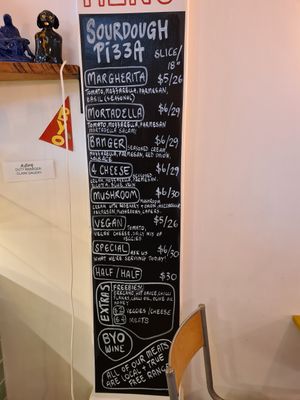 MENU
SOURDOUGH
PIZZA
SLICE/
18"
MARGHERITA $5/26
TOMATO, MOZZARELLA, PARMESAN,
BASIL (SEASONAL)
MORTADELLA $6/29
TOMATO, MOZZARELLA, PARMESAN
MORTADELLA SALAMI
BANGER $6/29
SEASONED CREAM
MOZZARELLA, PARMESAN, RED ONION,
SAUSAGE
4 CHEESE $6/29
SEASONED
CREAM, MOZZARELLA, PARMESAN,
MUSHROOM $6/30
MUSHROOM
CREAM, MOZZARELLA
PARMESAN, MUSHROOMS, CAPERS.
VEGAN $5/26
TOMATO,
VEGAN CHEESE, DAILY MIX OF
VEGGIES
SPECIAL $6/30
ASK US
WHAT WE'RE SERVING TODAY!
HALF/HALF $30
EXTRAS
FREEBIES:
OREGANO, HOT SAUCE, CHILLI
FLAKES, CHILLI OIL, OLIVE OIL
HONEY
VEGGIES/CHEESE
MEATS
BYO
WINE
ALL OF OUR MEATS
ARE LOCAL + TRUE
FREE RANGE
BYO